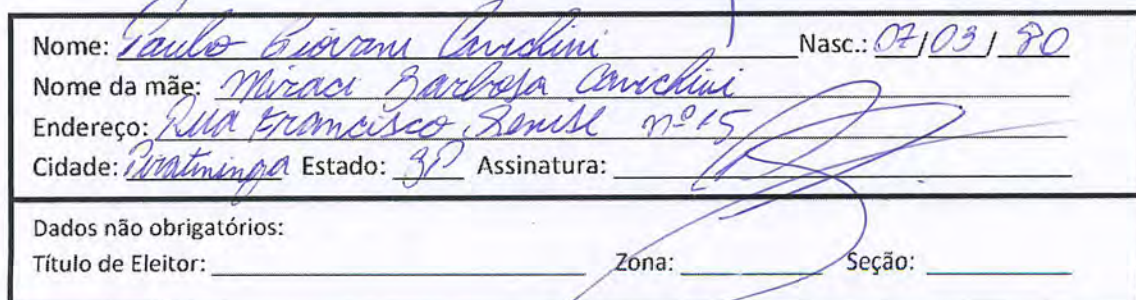 Nome: Paulo Giovani Cavichini Nasc.: 07/03/80
Nome da mãe: Miraci Barbosa Cavichini
Endereço: Rua Francisco Senise nº 15
Cidade: Piratininga Estado: SP Assinatura:
Dados não obrigatórios:
Título de Eleitor: Zona: Seção: